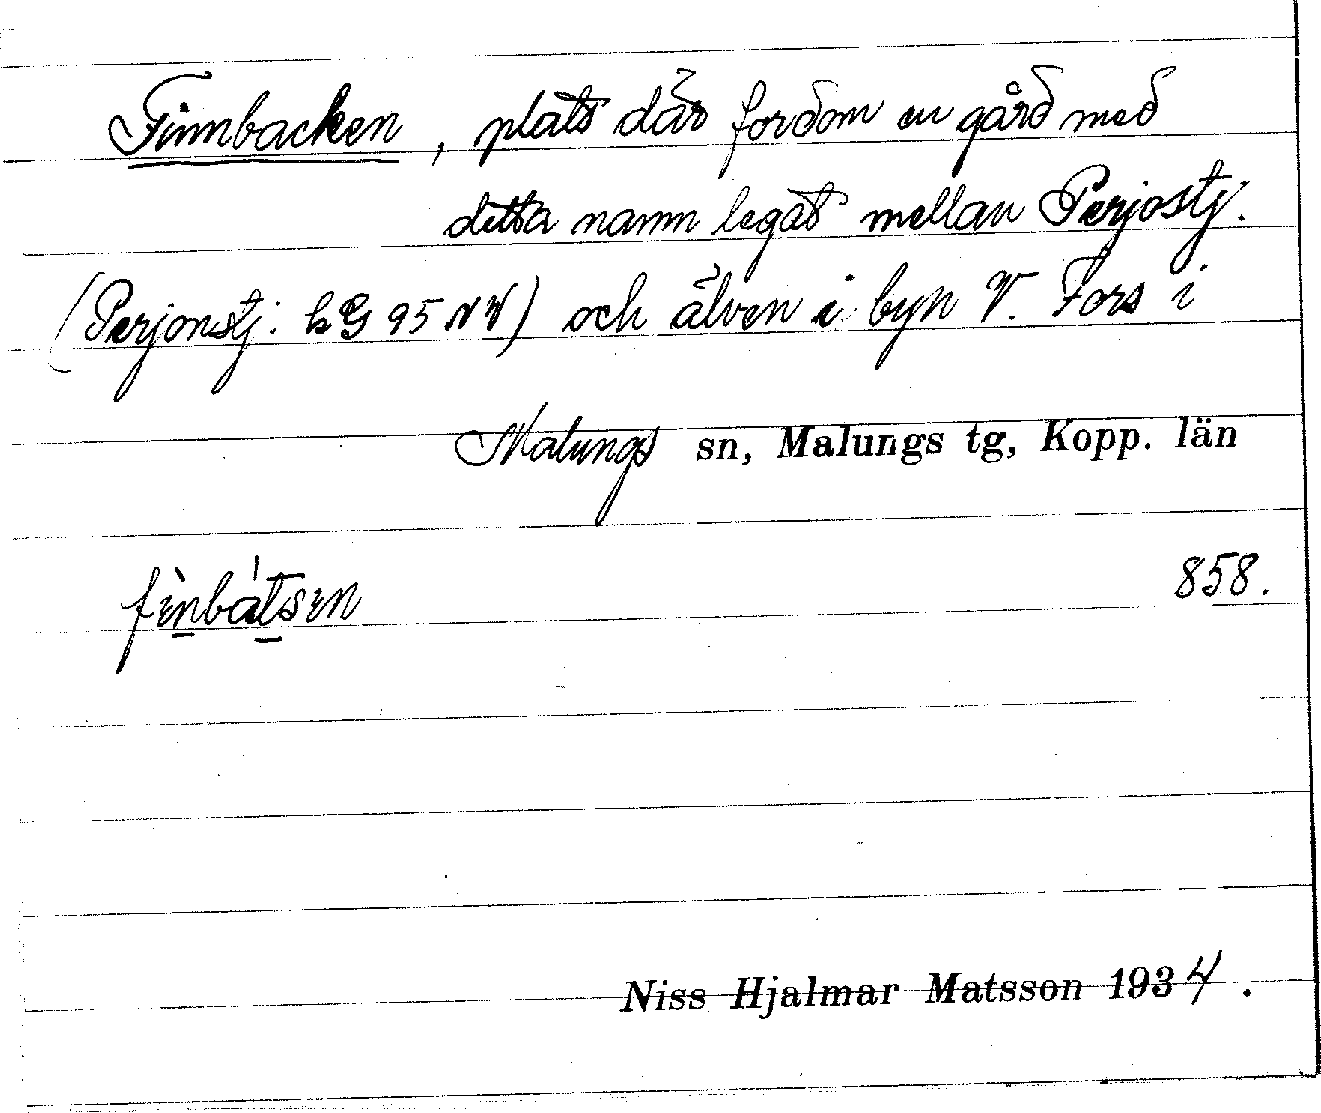 Finnbacken, plats där fordom en gård med
detta namn legat mellan Perjostj.
(Perjonstj: k G 95 NV) och älven i byn V. Fors i
Malungs sn, Malungs tg, Kopp. län
fìnbátsen 858.
Niss Hjalmar Matsson 1934.